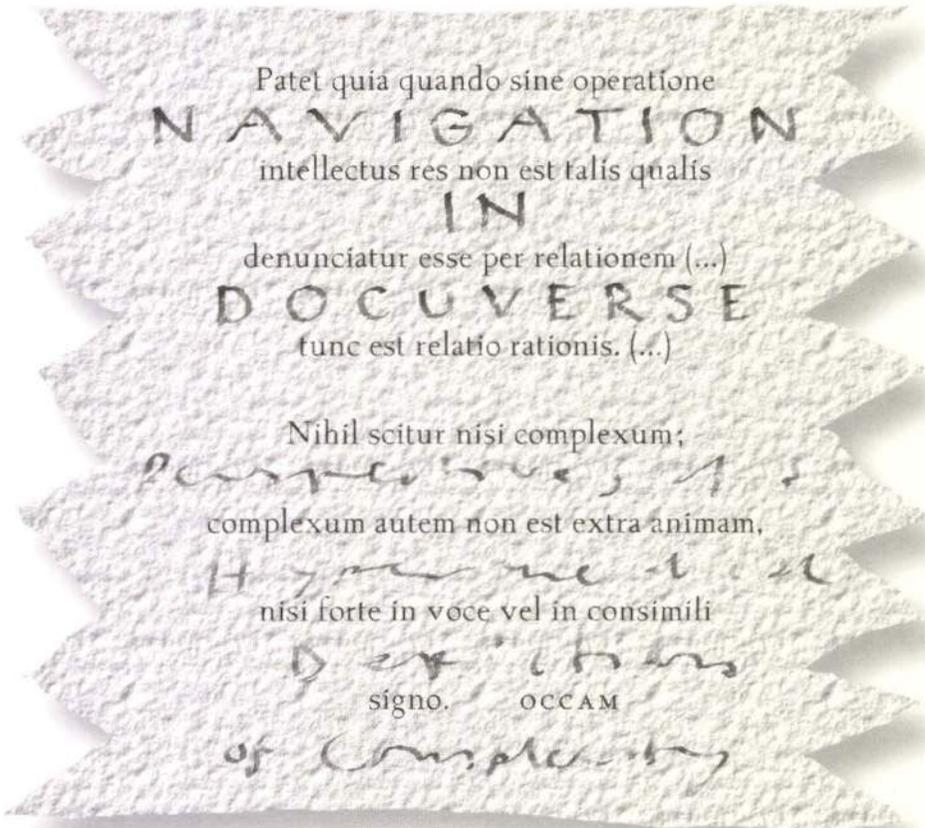 Patet quia quando sine operatione
NAVIGATION
intellectus res non est talis qualis
IN
denunciatur esse per relationem (...)
DOCUVERSE
tunc est relatio rationis. (...)
Nihil scitur nisi complexum;
complexum autem non est extra animam,
nisi forte in voce vel in consimili
signo. OCCAM
of Complexity